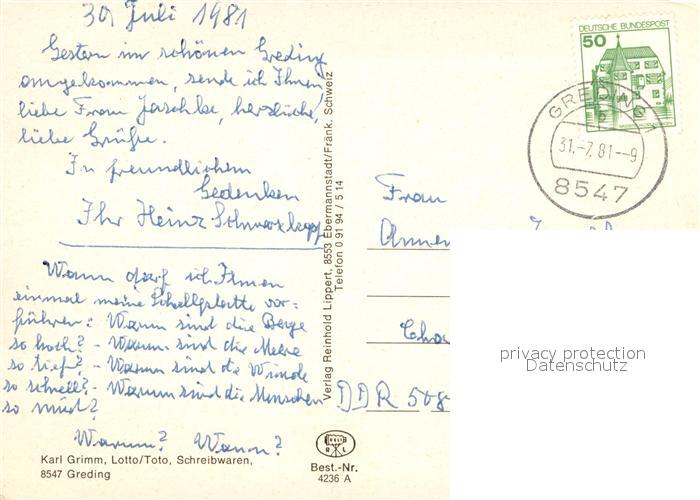 30 Juli 1981
Gestern im schönen Greding
angekommen, sende ich Ihnen,
liebe Frau Jaschke, herzliche,
liebe Grüße.
In freundlichem
Gedenken
Ihr Heinz Schwarzkopf
Wann darf ich Ihnen
einmal meine Schallplatte vor=
führen: Warum sind die Berge
so hoch? - Warum sind die Meere
so tief? - Warum sind die Winde
so schnell? - Warum sind die Menschen
so müd?
Warum? Wann?
Karl Grimm, Lotto/Toto, Schreibwaren,
8547 Greding
Verlag Reinhold Lippert, 8553 Ebermannstadt/Fränk. Schweiz
Telefon 0 91 94 / 5 14
R L
Best.-Nr.
4236 A
DEUTSCHE BUNDESPOST
50
GREDING 1
31.-7.81--9
8547
Frau
DDR 508
privacy protection
Datenschutz